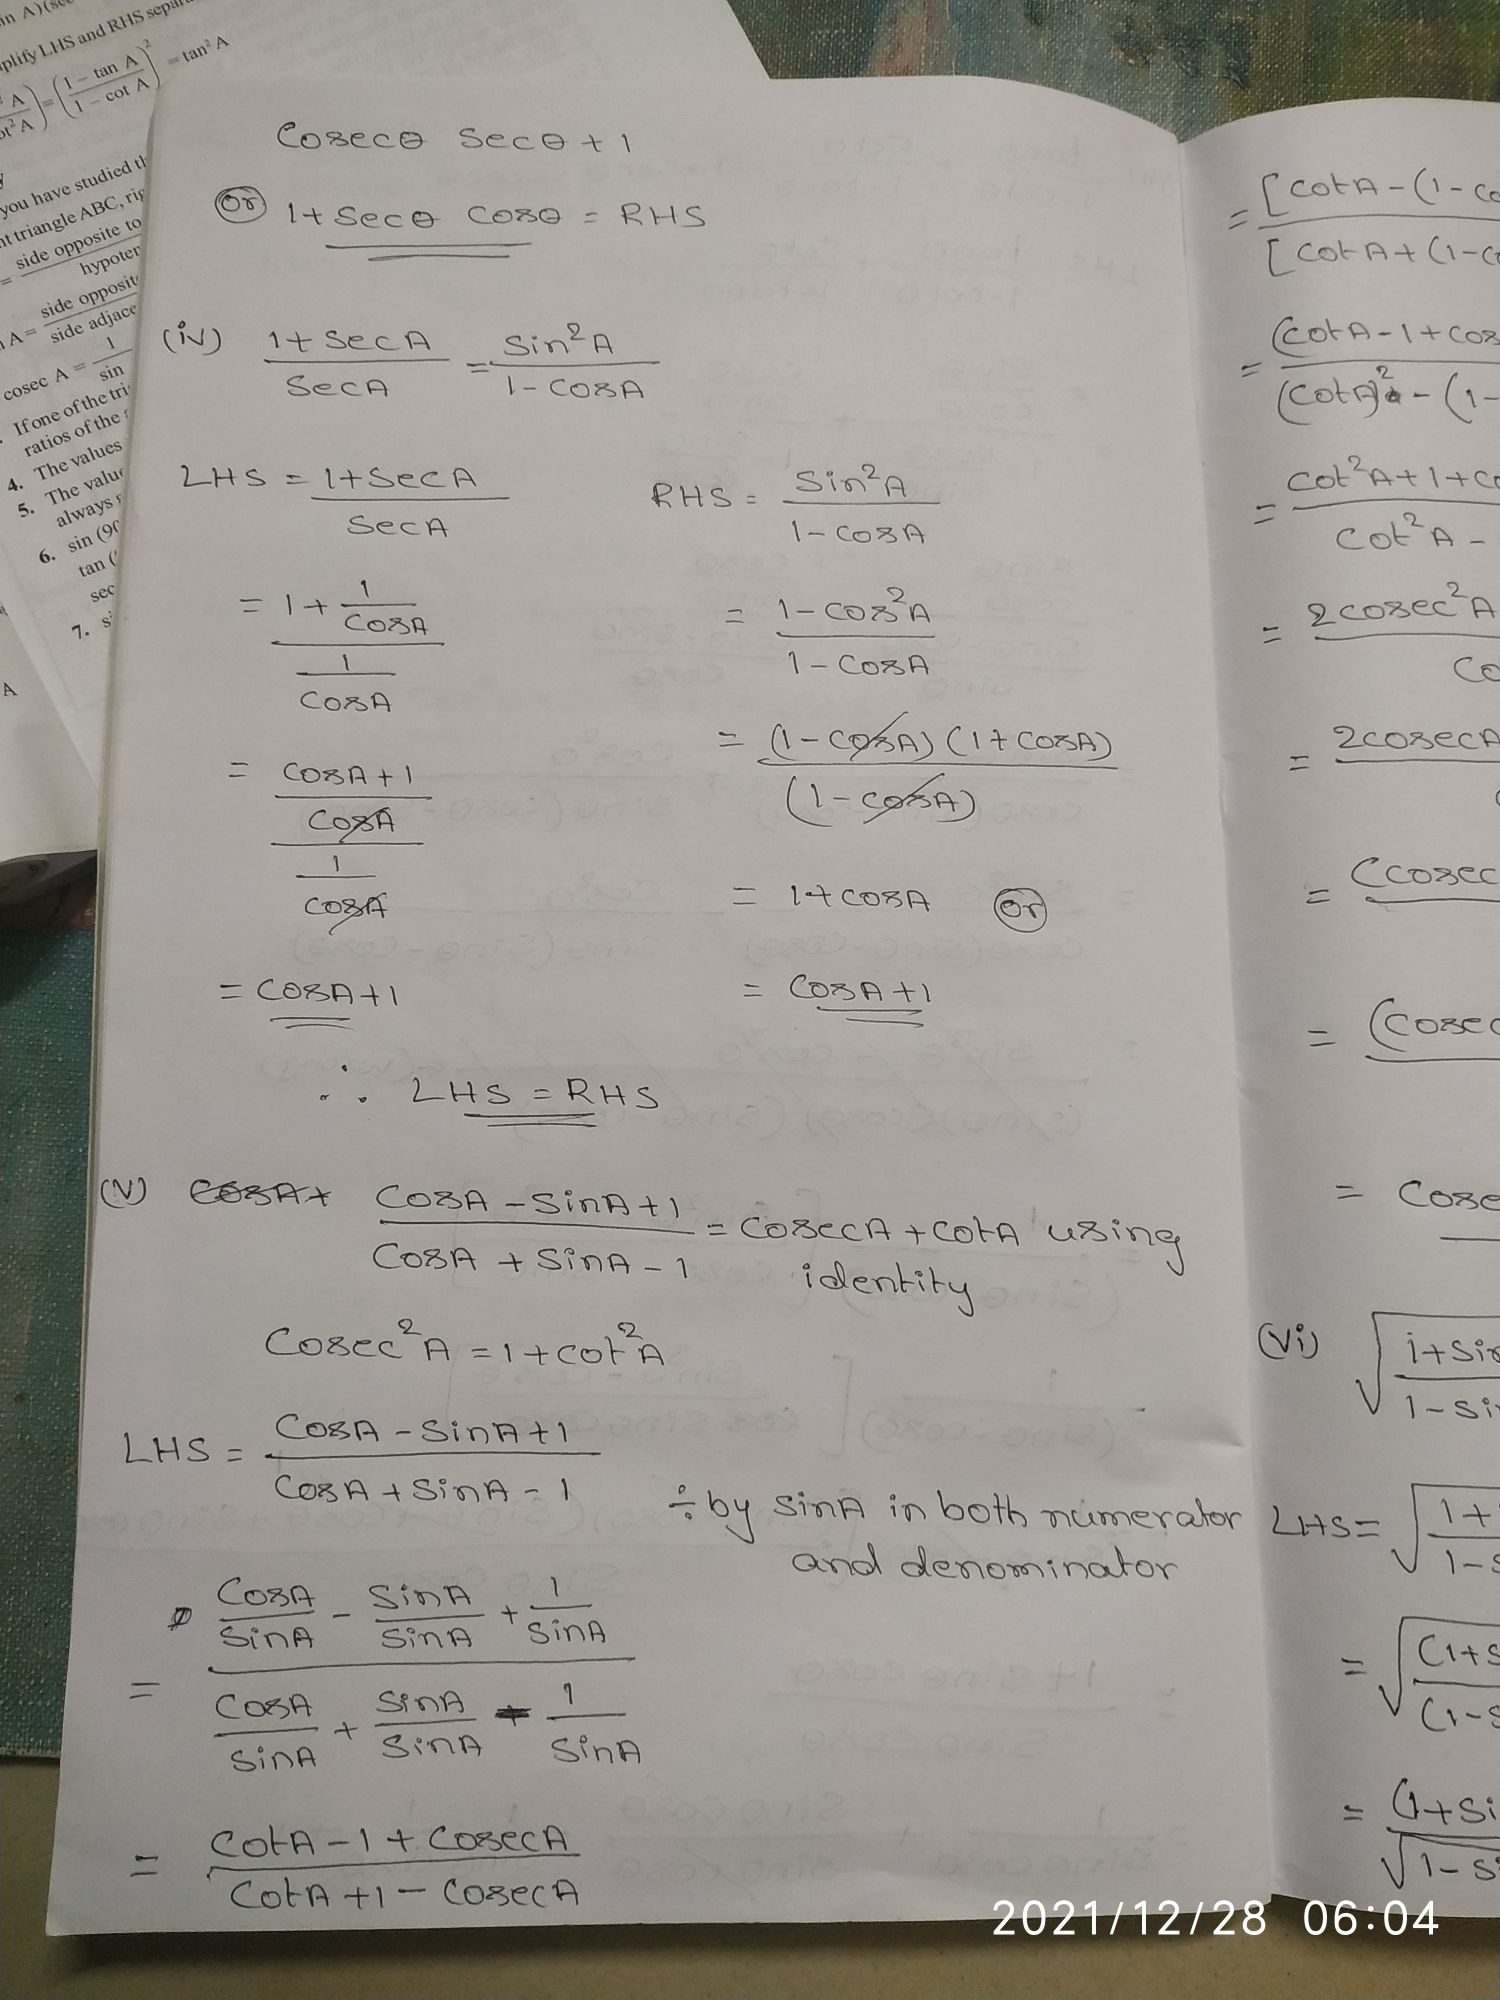 in A)(sec
plify LHS and RHS separ
A/ot²A) = ((1 – tan A)/(1 – cot A))² = tan² A
you have studied th
nt triangle ABC, rig
= side opposite to
hypoten
A = side opposit
side adjace
cosec A = 1/sin
If one of the tri
ratios of the
4. The values
5. The value
always
6. sin (90
tan (
sec
7. si
A
Cosecθ Secθ + 1
(or) 1 + Secθ Cosθ = RHS
(iv) (1 + SecA)/SecA = Sin²A/(1 - CosA)
LHS = (1 + SecA)/SecA
= (1 + 1/CosA)/(1/CosA)
= ((CosA + 1)/CosA)/(1/CosA)
= CosA + 1
RHS = Sin²A/(1 - CosA)
= (1 - Cos²A)/(1 - CosA)
= (1 - CosA)(1 + CosA)/(1 - CosA)
= 1 + CosA (or)
= CosA + 1
∴ LHS = RHS
(v) CosA + (CosA - SinA + 1)/(CosA + SinA - 1) = CosecA + CotA using
identity
Cosec²A = 1 + cot²A
LHS = (CosA - SinA + 1)/(CosA + SinA - 1)
÷ by sinA in both numerator
and denominator
= (CosA/SinA - SinA/SinA + 1/SinA)/(CosA/SinA + SinA/SinA - 1/SinA)
= (CotA - 1 + CosecA)/(CotA + 1 - CosecA)
= [CotA - (1 - Co
[CotA + (1 - Co
= (CotA - 1 + Cos
(CotA)² - (1 -
= Cot²A + 1 + Co
Cot²A -
= 2cosec²A
Co
= 2cosecA
= (Cosec
= (Cosec
= Cose
(vi) √ 1 + Sin
1 - Sin
LHS = √ 1 +
1 - S
= √ (1 + S
(1 - S
= (1 + Si
√ 1 - Si
2021/12/28 06:04